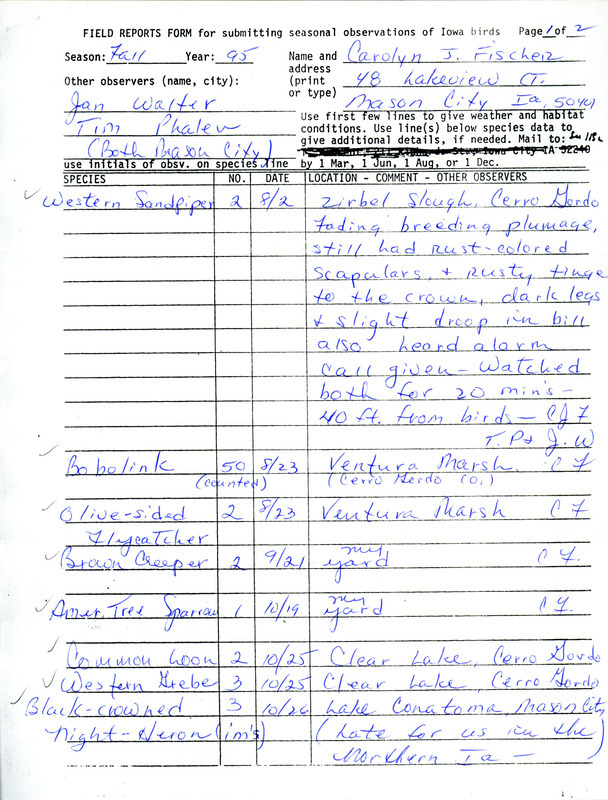 FIELD REPORTS FORM for submitting seasonal observations of Iowa birds Page 1 of 2
Season: Fall Year: 95 Name and Carolyn J. Fischer
address
Other observers (name, city): (print 48 Lakeview CT.
or type) Mason City Ia, 50401
Jan Walter
Tim Phalen
(Both Mason City)
Use first few lines to give weather and habitat
conditions. Use line(s) below species data to
give additional details, if needed. Mail to:
use initials of obsv. on species line by 1 Mar, 1 Jun, 1 Aug, or 1 Dec.
SPECIES NO. DATE LOCATION - COMMENT - OTHER OBSERVERS
Western Sandpiper 2 8/2 Zirbel Slough, Cerro Gordo
fading breeding plumage,
still had rust-colored
scapulars, & rusty tinge
to the crown, dark legs
& slight droop in bill
also heard alarm
call given - Watched
both for 20 min's -
40 ft. from birds - CJF
T.P & J.W
Bobolink 50 8/23 Ventura Marsh. CF
(counted) (Cerro Gerdo Co.)
Olive-sided 2 8/23 Ventura Marsh CF
Flycatcher
Brown Creeper 2 9/21 my yard CF.
Amer. Tree Sparrow 1 10/19 my yard CF.
Common Loon 2 10/25 Clear Lake, Cerro Gordo
Western Grebe 3 10/25 Clear Lake, Cerro Gordo
Black-crowned 3 10/26 Lake Conatoma, Mason City,
Night-Heron (im's) (Late for us in the)
Northern Ia -